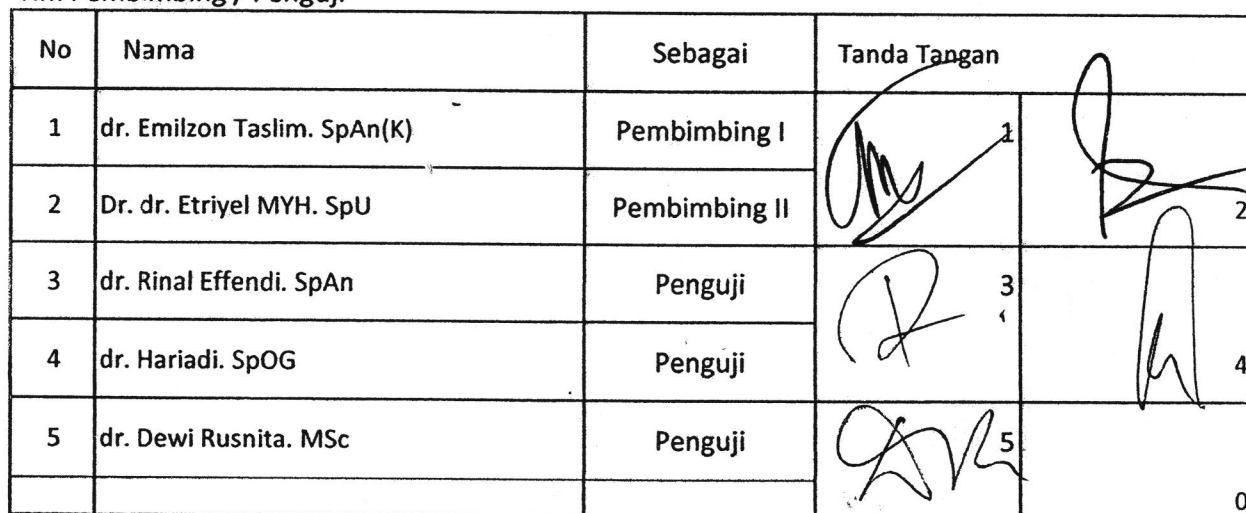 No Nama Sebagai Tanda Tangan
1 dr. Emilzon Taslim. SpAn(K) Pembimbing I 1
2 Dr. dr. Etriyel MYH. SpU Pembimbing II 2
3 dr. Rinal Effendi. SpAn Penguji 3
4 dr. Hariadi. SpOG Penguji 4
5 dr. Dewi Rusnita. MSc Penguji 5
0